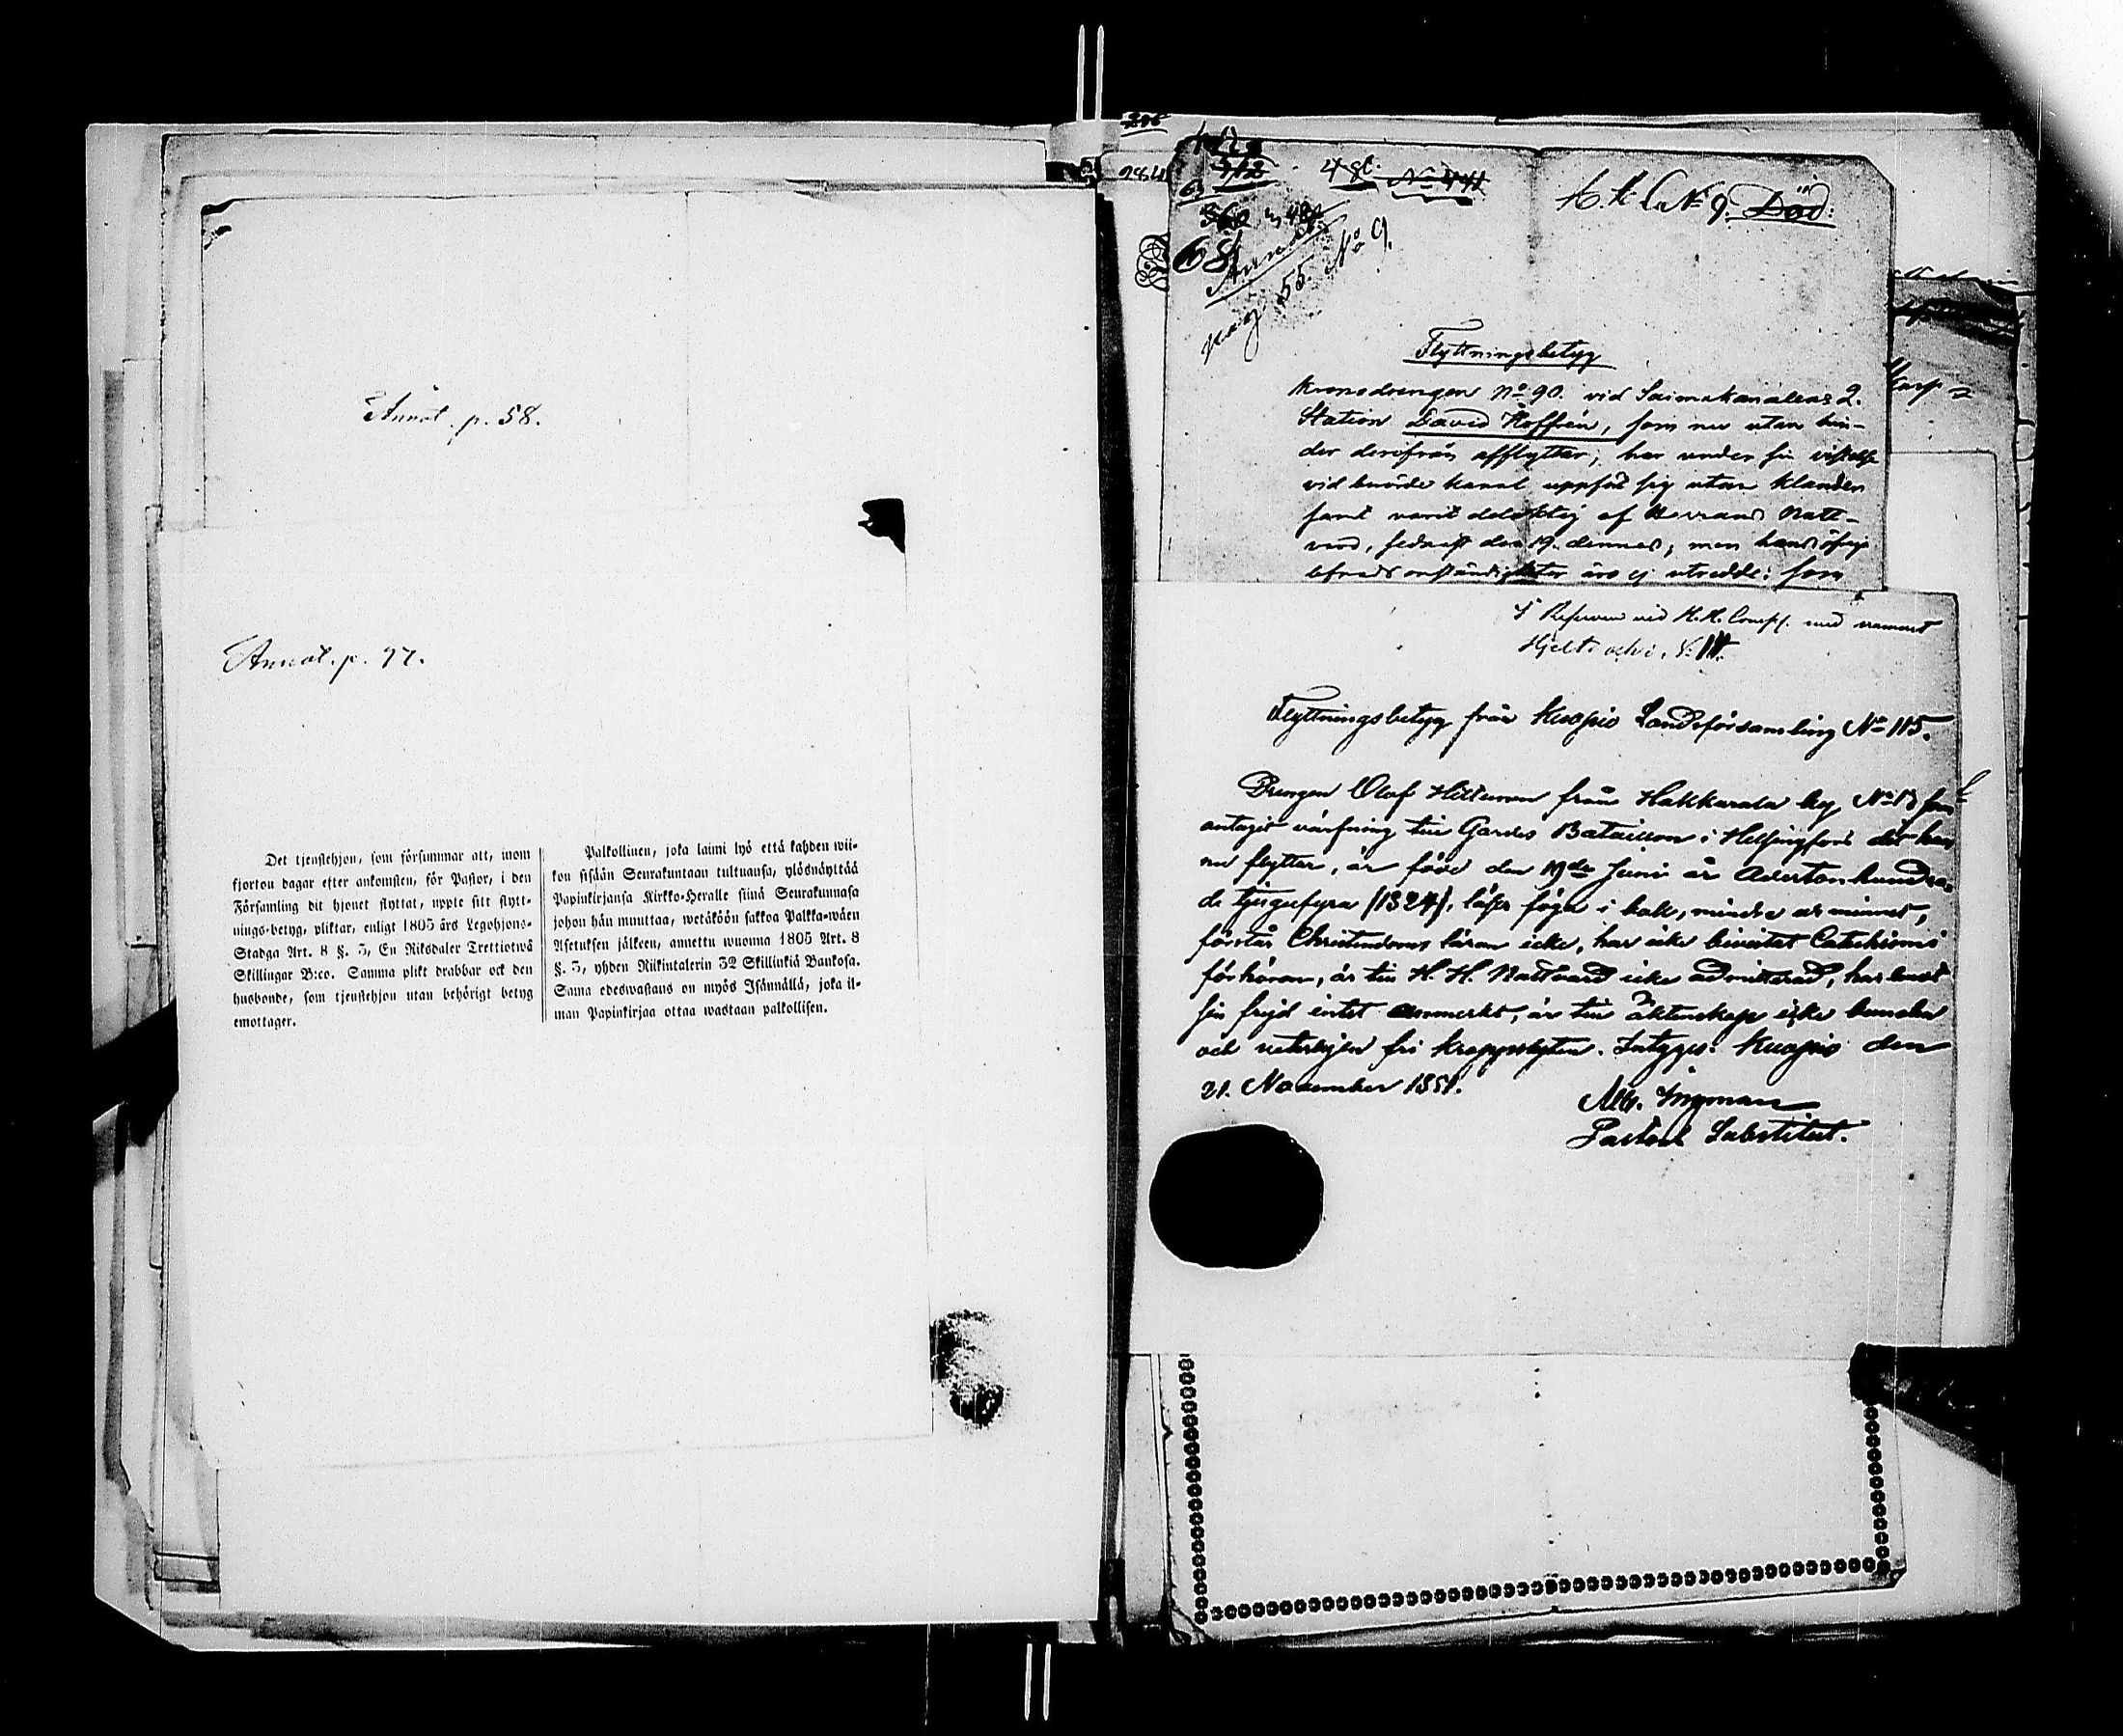 Annot. p. 58.
Annot. p. 97.
Det tjenstehjon, som försummar att, inom
fjorton dagar efter ankomsten, för Pastor, i den
Församling dit hjonet flyttat, uppte sitt flytt-
nings-betyg, pliktar, enligt 1805 års Legohjons-
Stadga Art. 8 §. 3, En Riksdaler Trettiotwå
Skillingar B:co. Samma plikt drabbar ock den
husbonde, som tjenstehjon utan behörigt betyg
emottager.
Palkollinen, joka laimi lyö että kahden wii-
kon sisään Seurakuntaan tultuansa, ylösnäyttää
Papinkirjansa Kirkko-Heralle siinä Seurakunnasa
johon hän muuttaa, wetäköön sakkoa Palkka-wäen
Asetuksen jälkeen, annettu wuonna 1805 Art. 8
§. 3, yhden Riikintalerin 32 Skillinkiä Bankosa.
Sama edeswastaus on myös Isännällä, joka il-
man Papinkirjaa ottaa wastaan palkollisen.
No 9. Död:
55. No 9.
Flyttningsbetyg
Kronodrengen No 90. vid Saimakanalens 2.
Station David Hoffrén, som nu utan hin-
der derifrån afflyttar, har under sin vistelse
vid berörde kanal uppfört sig utan klander
samt varit delaktig af Herrans Natt-
vard, sednast den 19. dennes, men hans öfrige
lefnads omständigheter äro ej utredde: som
I Reserven vid H. H. Comp. med namnet
Hjelt och i No
Flyttningsbetyg från Kuopio Landsförsamling No 115.
Drengen Olof Hiltunen från Hakkarala by No 13 som
antagit värfning till Gardes Bataillon i Helsingfors dit han
nu flyttar, är född den 19de Juni år Adertonhundra-
de tjugufyra (1824), läser föga i bok, mindre ur minnet,
förstår Christendoms läran icke, har icke bivistat Catechismi
förhören, är till H. H. Nattvard icke admitterad, har emot
sin frejd intet anmerkt, är till äktenskap icke bunden
och veterligen fri kroppslyten. Intygges. Kuopio den
21. November 1851.
Alb. Ingman
Pastors Substitut.